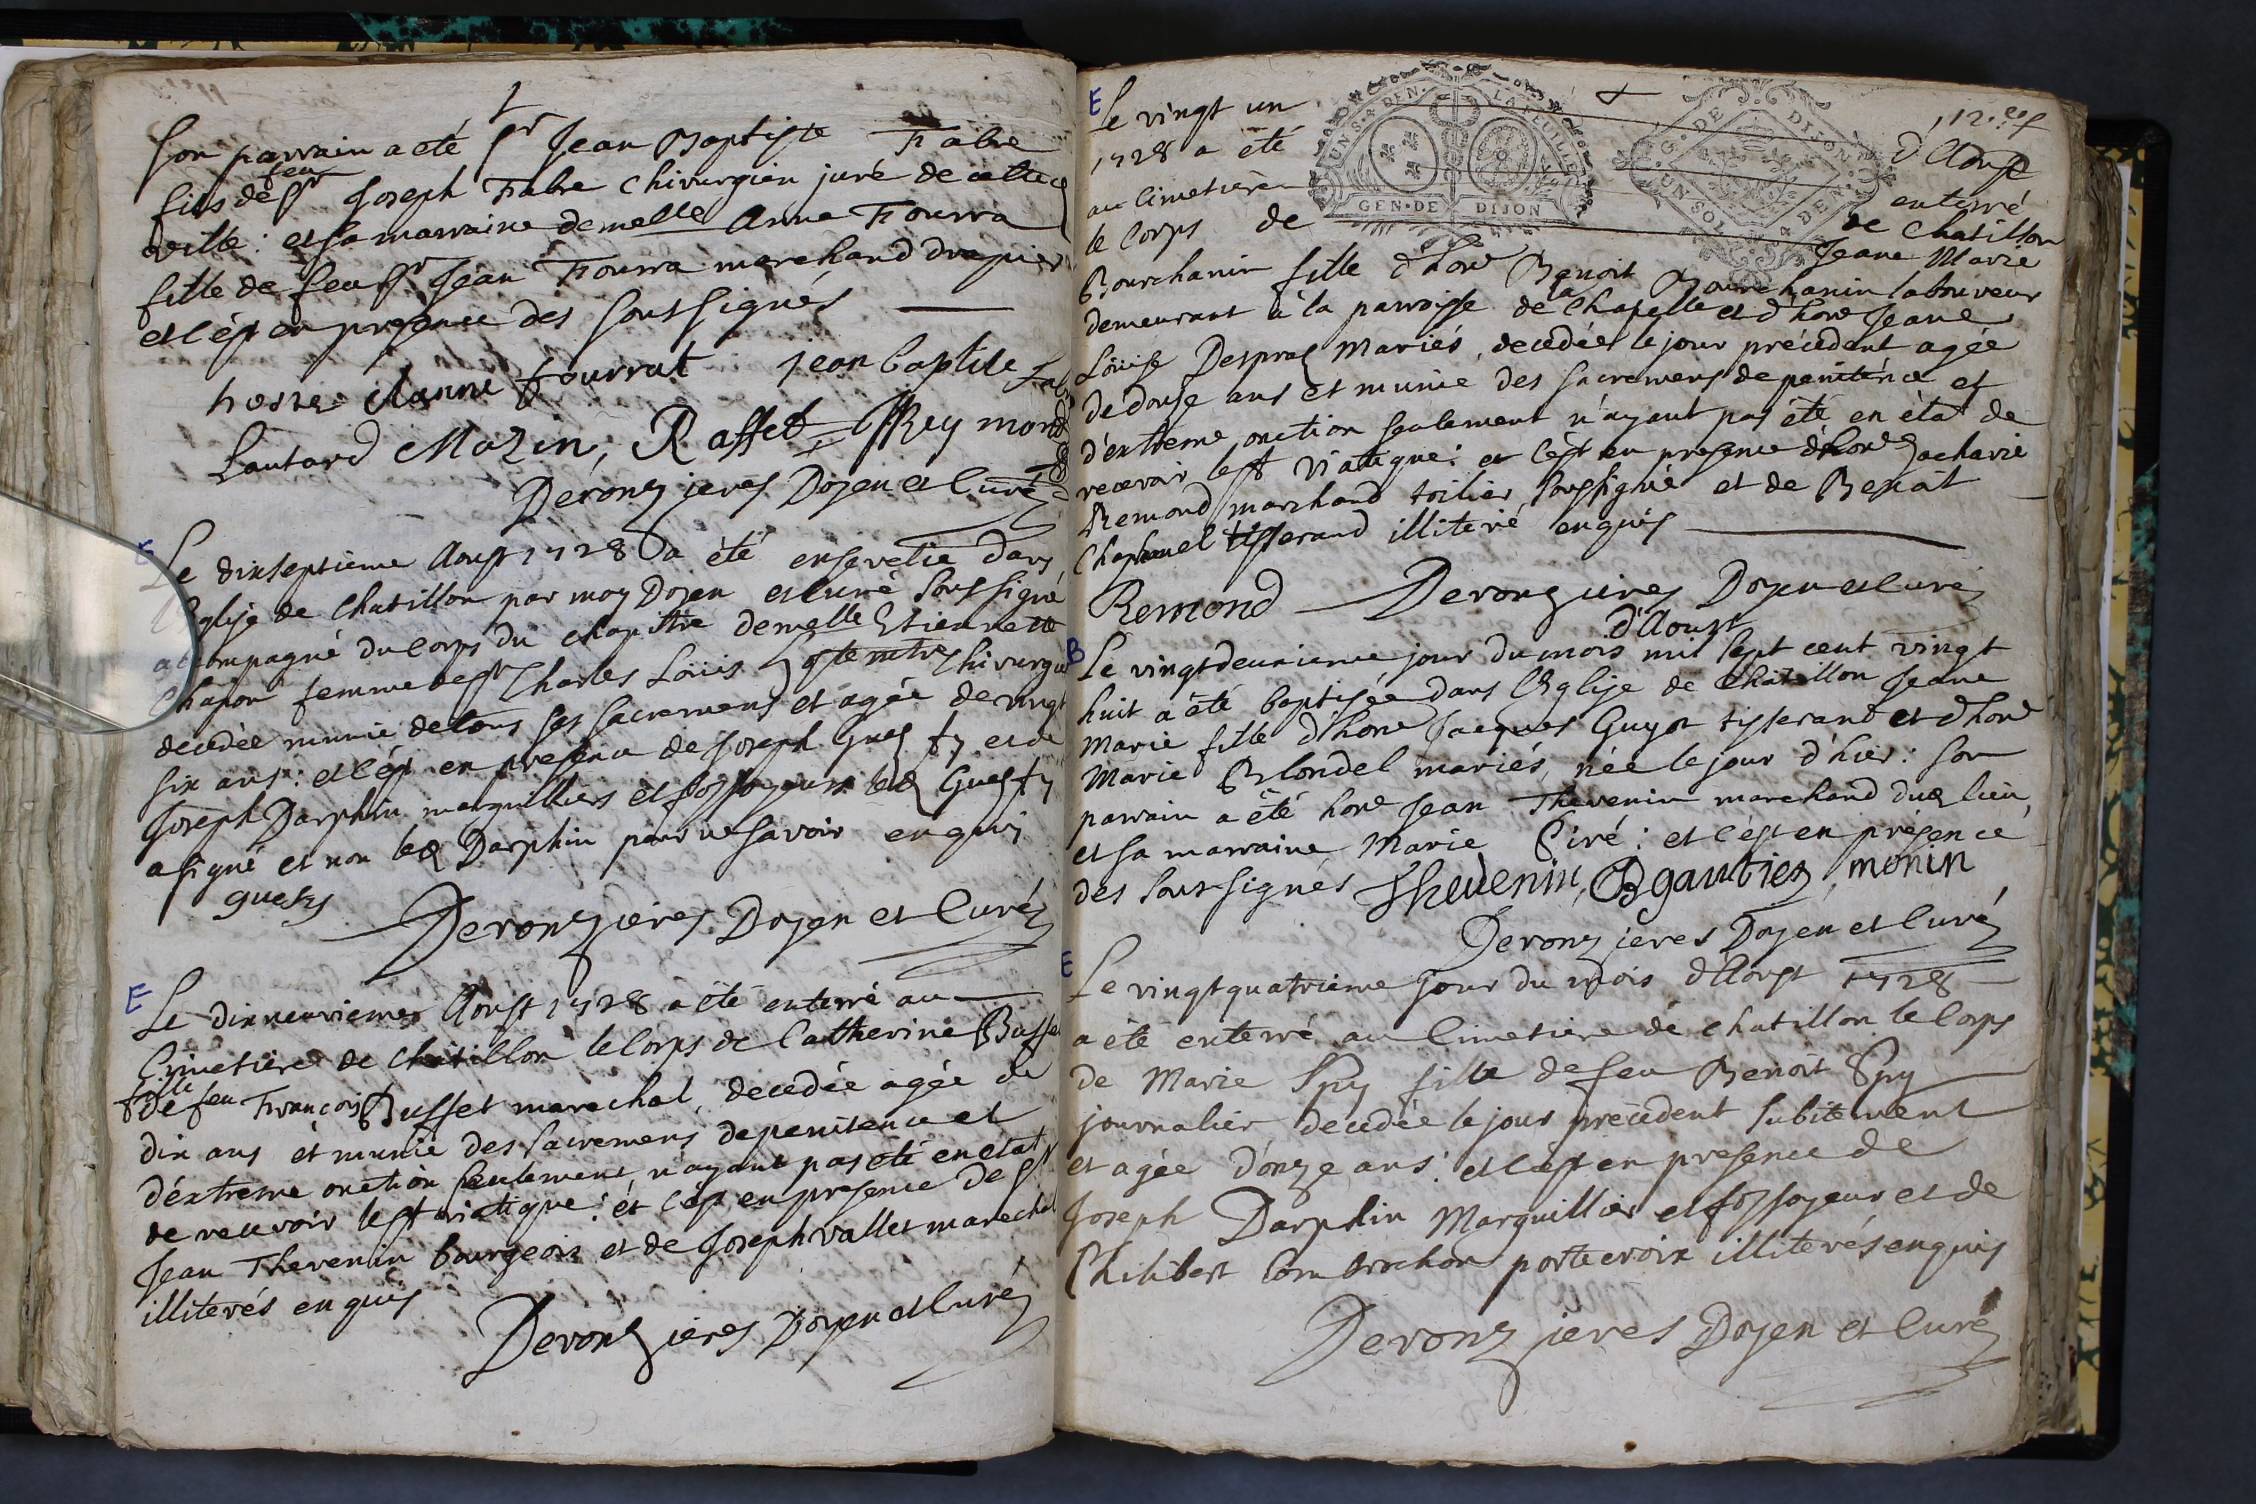 son parrain a eté Sr Jean Baptiste Fabre
fils de feu Sr Joseph Fabre chirurgien juré de cette
ville : et sa marraine demelle Anne Fourra
fille de feu Sr Jean Fourra marchand drapier
et c'ést en presence des soussignés
Anne fourrat jean baptiste
Lautard Mazin, Raffet Reymond
Deronzieres Doyen et Curé
E
Le dixseptieme Aoust 1728 a été ensevelie dans
l'Eglise de Chatillon par moy Doyen et curé soussigné
accompagné du Corps du chapitre demelle Etiennette
Chapon femme de Sr Charles Loüis chirurgie
decedée munie de tous ses sacremens et agée de vingt
six ans : et c'ést en presence de Joseph Guesty et de
Joseph Darphin marguilliers et fossoyeurs led Guesty
a signé et non led Darphin pour ne savoir enquis
guesty Deronzieres Doyen et Curé
E
Le dixneuvieme Aoust 1728 a été enterré au
Cimetiere de chatillon le Corps de Catherine Buffet
fille de feu François Buffet marechal, decedée agée de
dix ans et munie des sacremens de penitence et
d'éxtreme onction seulement, n'ayant pas été en état
de recevoir le st viatique : et c'ést en presence de Sr
Jean Thevenin bourgeois et de Joseph vallet marechal
illiterés enquis
Deronzieres Doyen et Curé
12.
E
Le vingt un d'Aoust
1728 a été enterré
au Cimetiere de Chatillon
le Corps de Jeane Marie
UN S. 4 DEN. LA FEUILLE
GEN. DE DIJON
G. DE DIJON
UN SOL 4 DEN
Bourchanin fille d'hone Benoit Bourchanin laboureur
demeurant à la parroisse de la Chapelle et d'hone Jeane
Loüise Despras mariés, decedée le jour précedent agée
de douse ans et munie des sacremens de penitence et
d'extreme onction seulement n'ayant pas été en état de
recevoir le st Viatique : et c'ést en presence d'hone Zacharie
Remond marchand toilier soussigné et de Benoit
tisserand illiteré enquis
Remond Deronzieres Doyen et Curé
B
Le vingtdeuxieme jour du mois d'Aoust mil sept cent vingt
huit a été baptisée dans l'Eglise de Chatillon Jeane
Marie fille d'hone Jacques Guyot tisserand et d'hone
Marie Blondel mariés, née le jour d'hier : son
parrain a été hone Jean Thevenin marchand dud lieu,
et sa marraine Marie Ciré : et c'ést en présence
des soussignés Thevenin, B gautier, monin
Deronzieres Doyen et Curé
E
Le vingtquatrieme jour du mois d'Aoust 1728
a été enterré au Cimetiere de chatillon le Corps
de Marie Spy fille de feu Benoit Spy
journalier decedée le jour precedent subitement
et agée d'onze ans : et c'ést en presence de
Joseph Darphin Marguillier et fossoyeur et de
Philibert Combrochon porte croix illiterés enquis
Deronzieres Doyen et Curé